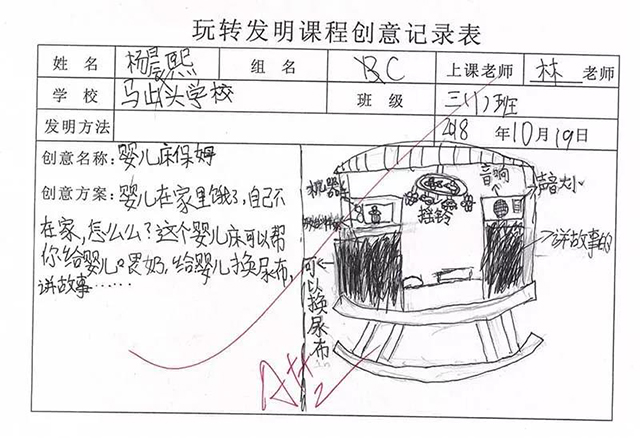 玩转发明课程创意记录表
姓名 杨晨熙 组名 BC 上课老师 林 老师
学校 马山头学校 班级 三(1)班
发明方法 2018 年10月19日
创意名称:婴儿床保姆
创意方案:婴儿在家里饿了,自己不
在家,怎么么?这个婴儿床可以帮
你给婴儿喂奶,给婴儿换尿布,
讲故事……
音响
声音大小
摇铃
讲故事的
可以换尿布
A++
2